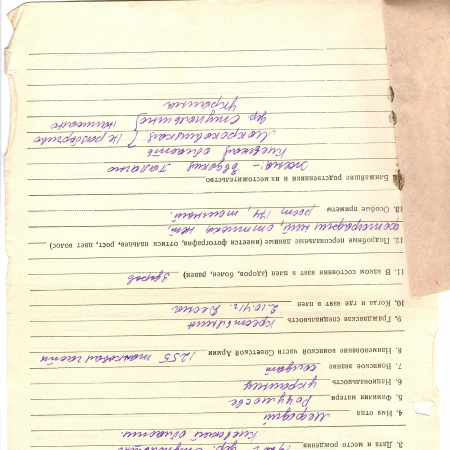 3. Дата и место рождения
Киевской области.
4. Имя отца Мефодий
5. Фамилия матери
6. Национальность украинец
7. Воинское звание солдат
8. Наименование воинской части Советской Армии 1255
9. Гражданская специальность крестьянин
10. Когда и где взят в плен 2.10.41г. Десна
11. В каком состоянии взят в плен (здоров, болен, ранен) здоров
12. Подробные персональные данные (имеется фотография, оттиск пальца, рост, цвет волос)
фотографии ний, оттиска нет.
13. Особые приметы рост 174, темный.
Ближайшие родственники и их местожительство
жена:- Евдокия
Киевская область
неразборчиво
дер. написано
Украина